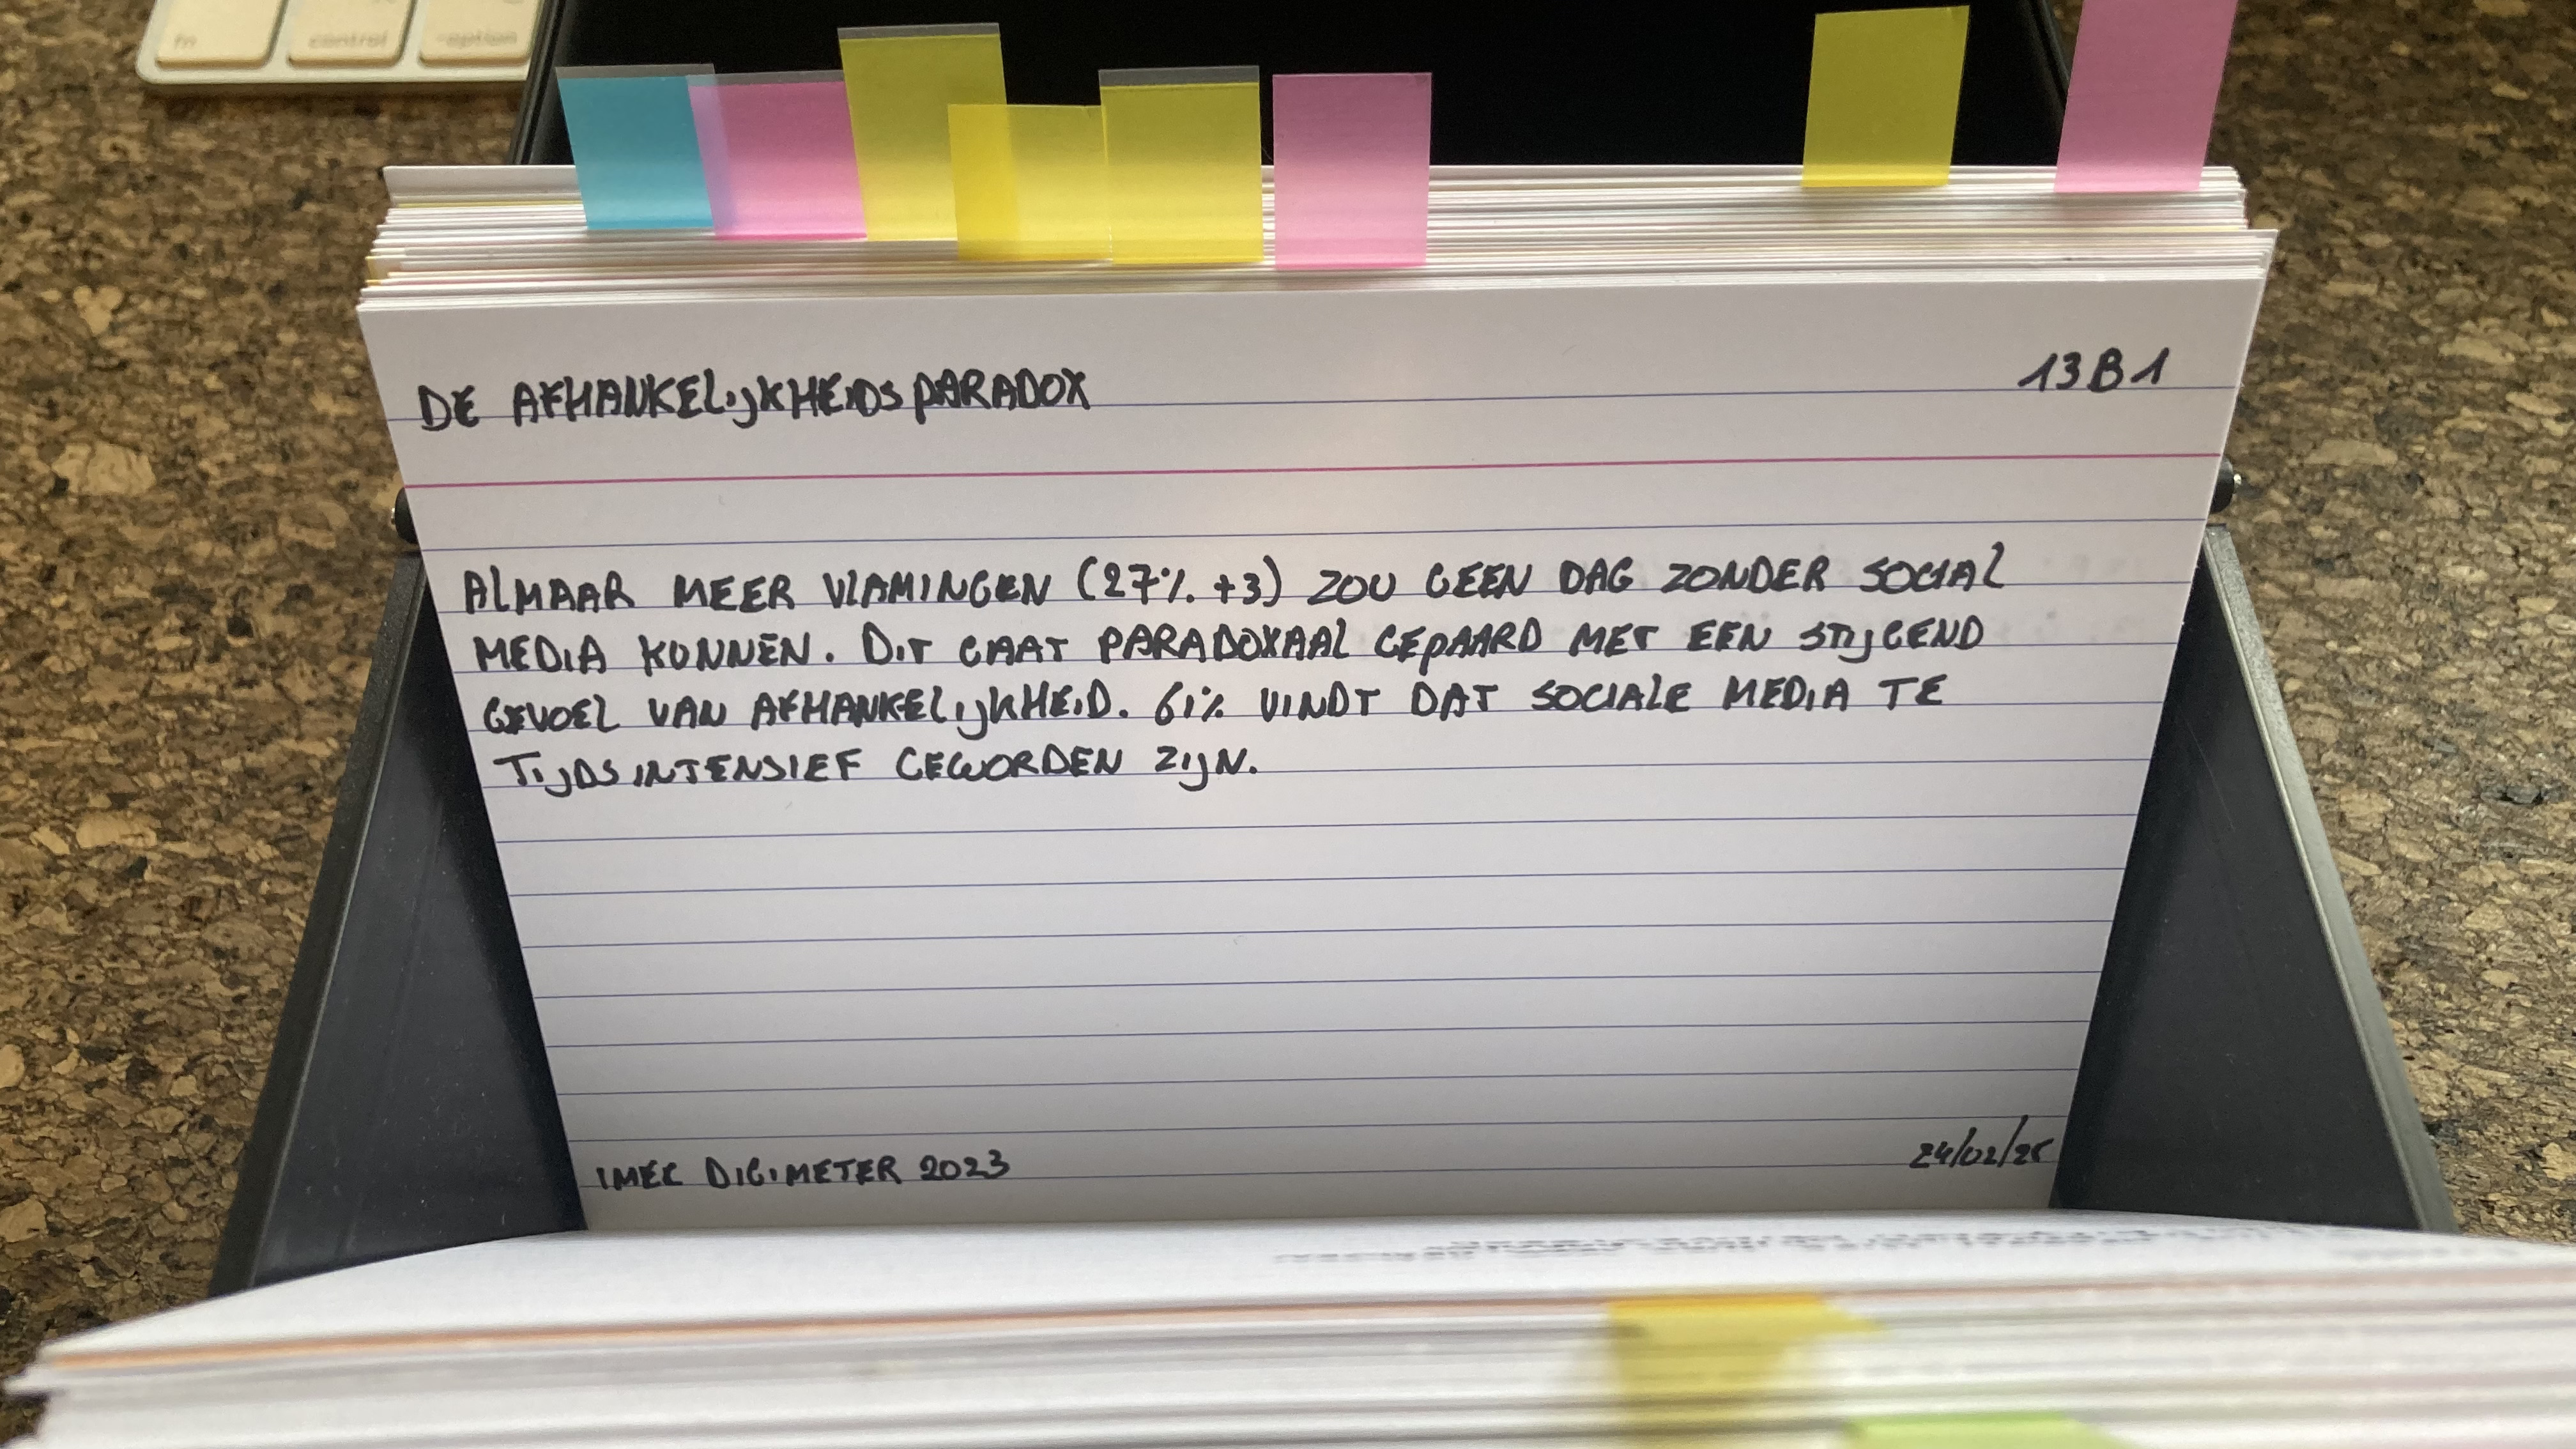 fn control option
DE AFHANKELIJKHEIDSPARADOX 13B1
ALMAAR MEER VLAMINGEN (27% +3) ZOU GEEN DAG ZONDER SOCIAL
MEDIA KUNNEN. DIT GAAT PARADOXAAL GEPAARD MET EEN STIJGEND
GEVOEL VAN AFHANKELIJKHEID. 61% VINDT DAT SOCIALE MEDIA TE
TIJDSINTENSIEF GEWORDEN ZIJN.
IMEC DIGIMETER 2023